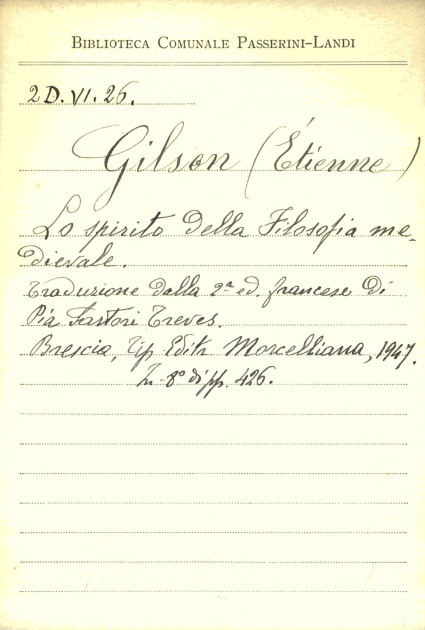 BIBLIOTECA COMUNALE PASSERINI-LANDI
2D.VI.26.
Gilson (Étienne)
Lo spirito della Filosofia me-
dievale.
Traduzione dalla 2ª ed. francese di
Pia Sartori Treves.
Brescia, Tip. Editr. Morcelliana, 1947.
In-8º di pp. 426.